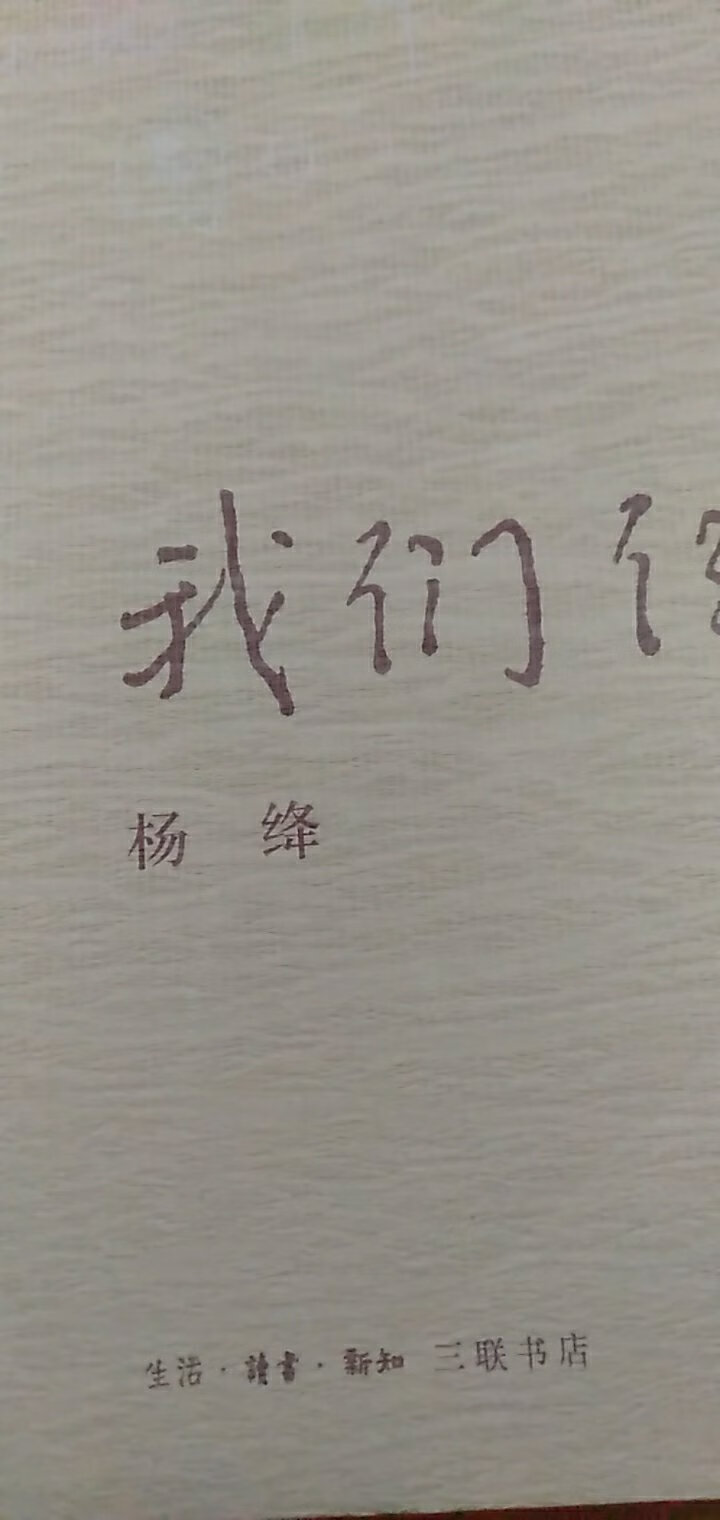 我们
杨 绛
生活·讀書·新知 三联书店